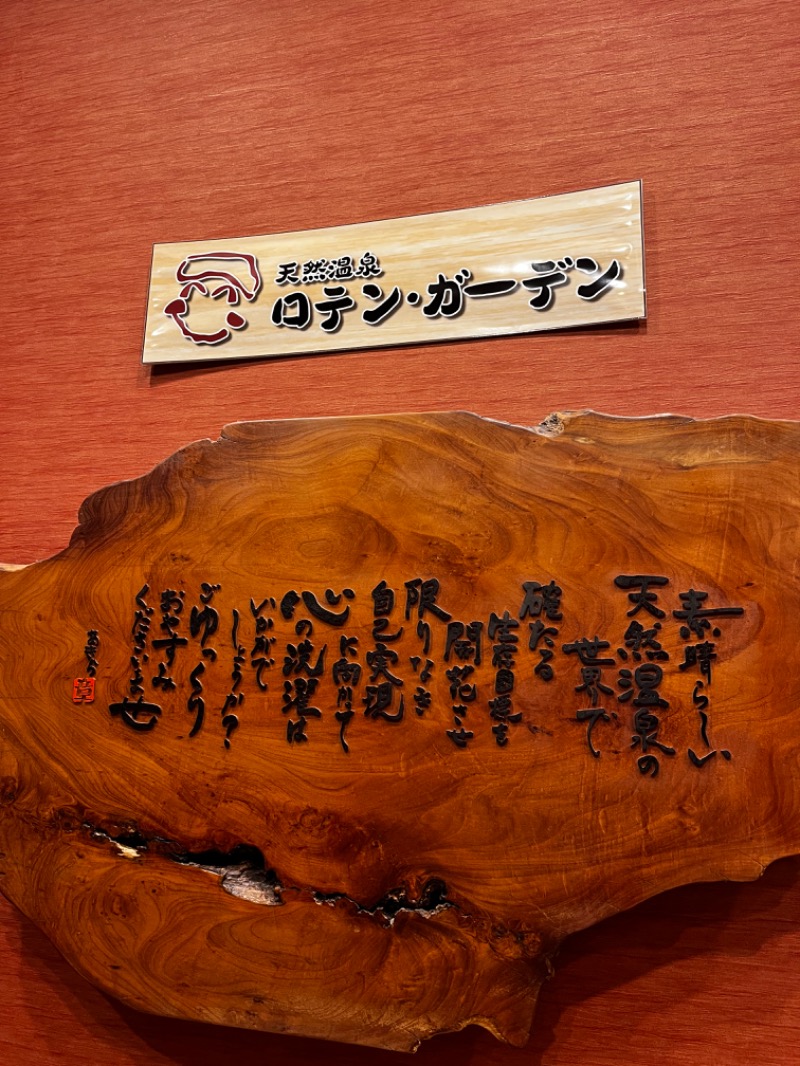 天然温泉
ロテン・ガーデン
素晴らしい
天然温泉の
世界で
確たる
生涯目標を
開花させ
限りなき
自己実現
に向かって
心の洗濯は
いかがで
しょうか?
ごゆっくり
おやすみ
くださいませ